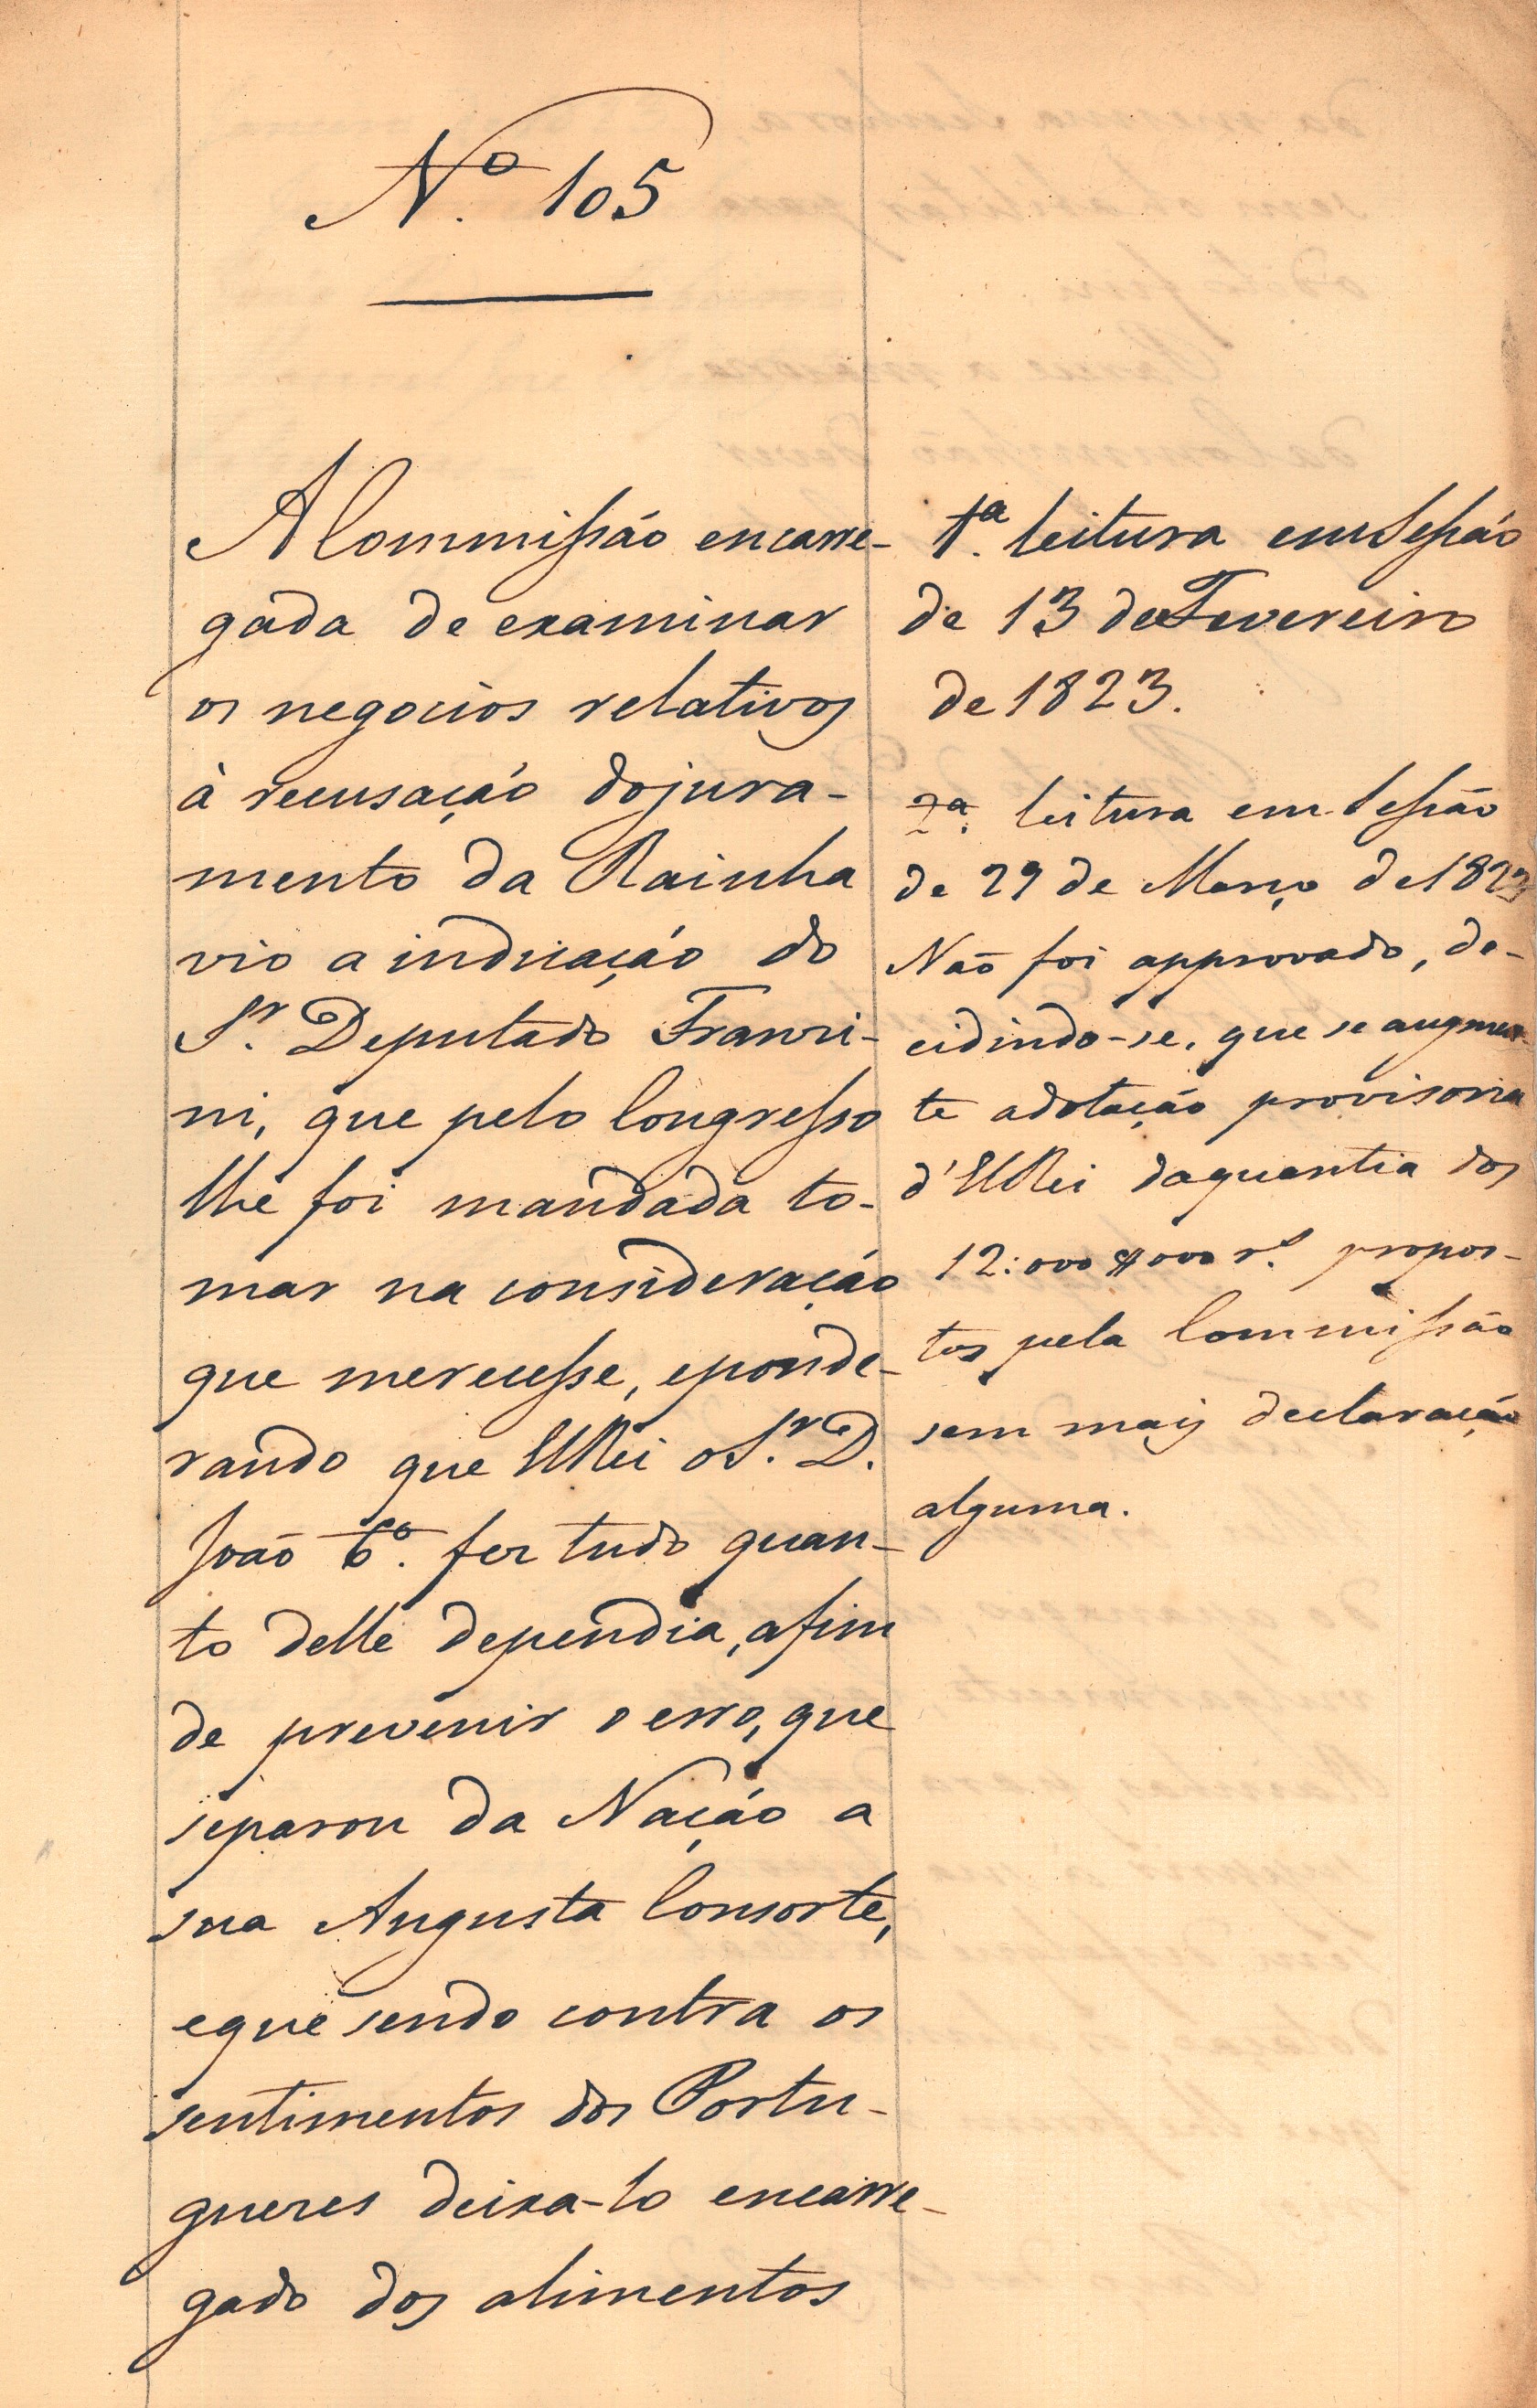 Nº. 105
A Commissão encarre-
gada de examinar
os negocios relativos
à recusação do jura-
mento da Rainha
vio a indicação do
Sr. Deputado Franzi-
ni, que pelo Congresso
lhe foi mandada to-
mar na consideração
que merecesse, e ponde-
rando que ElRei o Sr. D.
João 6º. fez tudo quan-
to delle dependia, afim
de prevenir o erro, que
separou da Nação a
sua Augusta Consorte,
e que sendo contra os
sentimentos dos Portu-
guezes deixa-lo encarre-
gado dos alimentos
1ª. leitura em Sessão
de 13 de Fevereiro
de 1823.
2ª. leitura em Sessão
de 29 de Março de 1823
Não foi approvado, de-
cidindo-se, que se augmen-
te a dotação provisoria
d'ElRei da quantia dos
12:000$000 rs. propos-
tos pela Commissão
sem mais declaração
alguma.